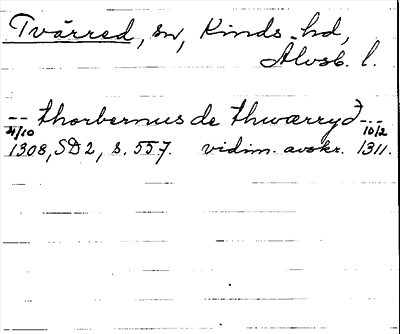 Tvärred, sn, Kinds hd,
Älvsb. l.
-- thorbernus de thwærryd --
21/10 10/2
1308, SD 2, s. 557. vidim. avskr. 1311.